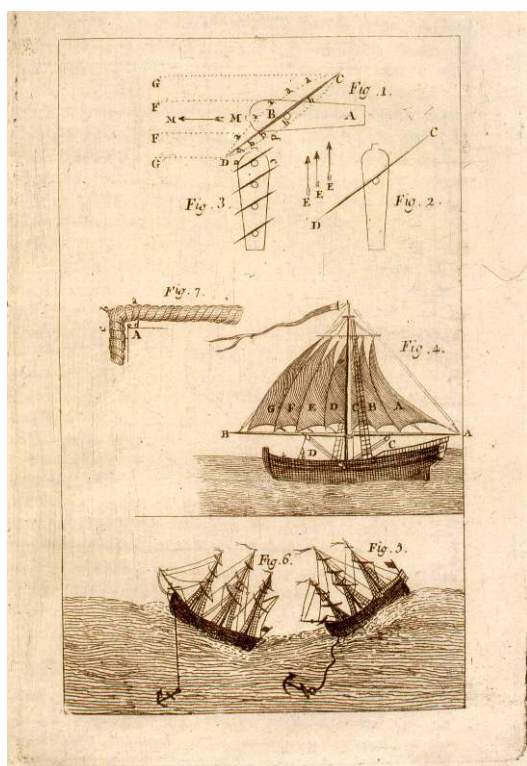 G
C
Fig. 1.
F
M
M
B
A
F
G
D
C
C
Fig. 3.
E
E
E
D
Fig. 2.
Fig. 7.
A
Fig. 4.
G F E D C B A
B
A
D
C
Fig. 6.
Fig. 5.